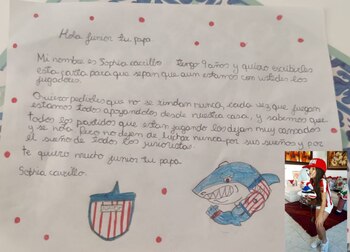 Hola junior tu papa
Mi nombre es Sophia carrillo Tengo 9 años y quiero escribirles
esta carta para que sepan que aun estamos con ustedes los
jugadores.
Quiero pedirles que no se rindan nunca, cada vez que juegan
estamos todos apoyandolos desde nuestra casa, y sabemos que
todos los partidos que estan jugando los dejan muy cansados
y se nota. Pero no dejen de luchar nunca por sus sueños y por
el sueño de todos los junioristas.
te quiero mucho junior tu papa.
Sophia carrillo.